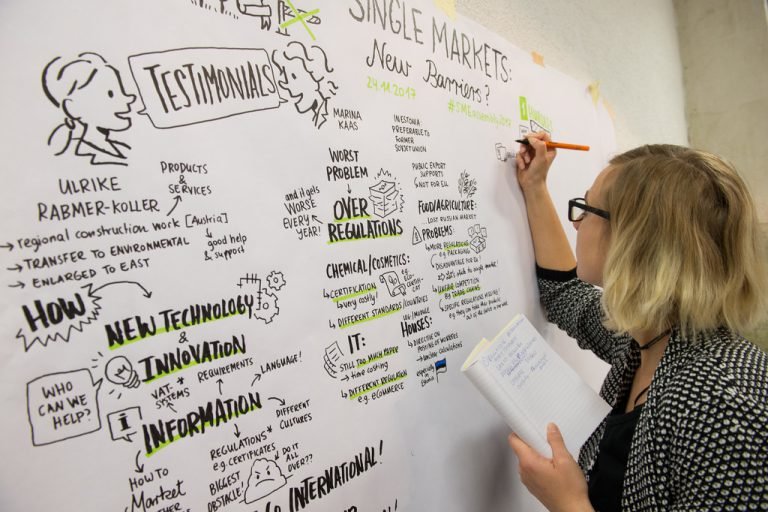 SINGLE MARKETS:
New Barriers?
24.11.2017
#SMEassembly2017
TESTIMONIALS
ULRIKE
RABMER-KOLLER
PRODUCTS
&
SERVICES
→ regional construction work [Austria]
→ TRANSFER TO ENVIRONMENTAL
→ ENLARGED TO EAST
good help
& support
HOW
NEW TECHNOLOGY
&
INNOVATION
WHO
CAN WE
HELP?
i
VAT-*
SYSTEMS
REQUIREMENTS
LANGUAGE!
INFORMATION
DIFFERENT
CULTURES
HOW TO
Market
REGULATIONS*
e.g. CERTIFICATES
BIGGEST
OBSTACLE!
DO IT
ALL
OVER??
INTERNATIONAL!
MARINA
KAAS
IN ESTONIA:
PREFERABLE TO
FORMER
SOVJET UNION
WORST
PROBLEM
and it gets
WORSE
EVERY YEAR!
OVER
REGULATIONS
PUBLIC EXPORT
SUPPORTS
NOT FOR EU
CHEMICAL/COSMETICS:
CERTIFICATION
very costly!
DIFFERENT STANDARDS/COUNTRIES
IT:
STILL TOO MUCH PAPER
→ time costing
DIFFERENT REGULATION
e.g. ECOMMERCE
FOOD/AGRICULTURE:
LOST RUSSIAN MARKET
PROBLEMS:
MORE REGULATIONS
e.g. PACKAGING
DISADVANTAGE FOR EU
UNFAIR COMPETITION
e.g. TRADE CHAINS
SPECIFIC REGULATIONS MISSING!
HOUSES:
DIRECTIVE ON
POSTING OF WORKERS
especially in
Estonia
1